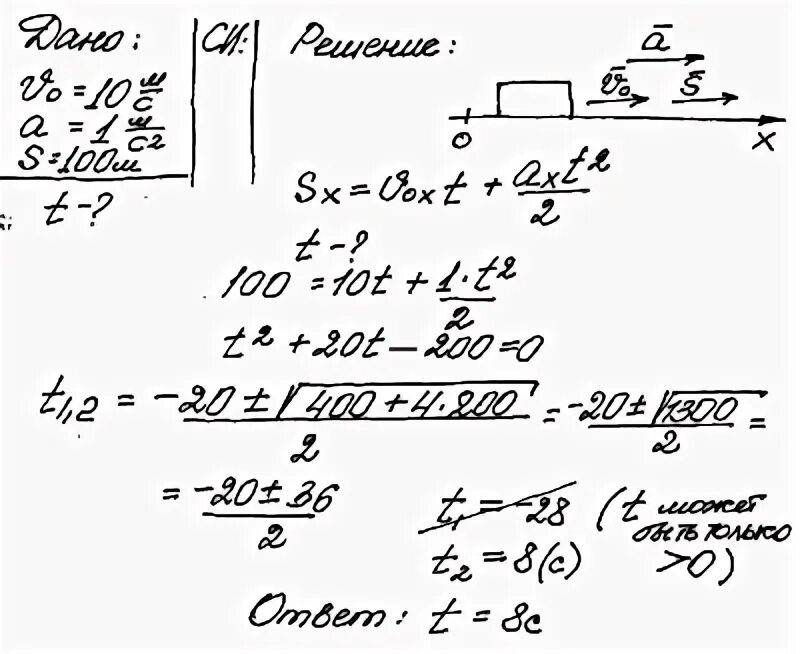 Дано: СИ: Решение:
v₀ = 10 м/с
a = 1 м/с²
S = 100м
t - ?
a̅
v̅₀ S̅
0 x
Sx = v₀x t + axt²/2
t - ?
100 = 10t + 1·t²/2
t² + 20t - 200 = 0
t₁,₂ = -20 ± √(400 + 4·200)/2 = -20 ± √1300/2 =
= -20 ± 36/2
t₁ = -28 (t может
быть только
t₂ = 8(с) >0)
Ответ: t = 8с